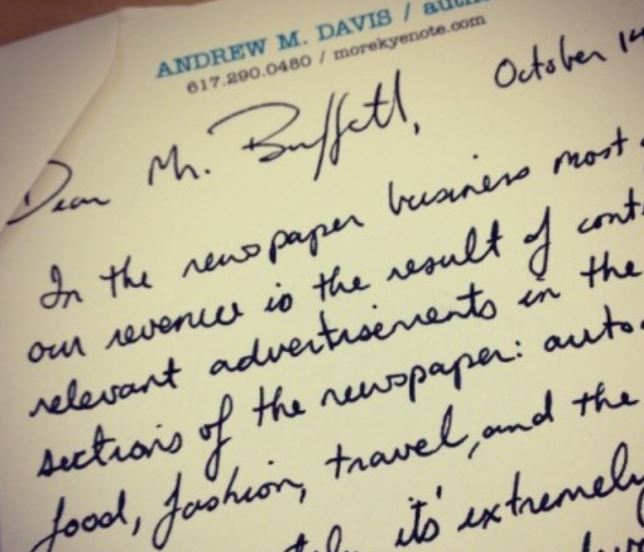 ANDREW M. DAVIS / auth
617.290.0480 / morekyenote.com
October 14
Dear Mr. Buffett,
In the newspaper business most
our revenue is the result of cont
relevant advertisements in the
sections of the newspaper: auto
food, fashion, travel, and the
it's extremely